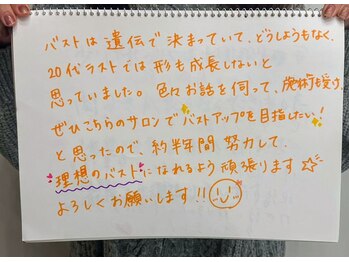 バストは遺伝で決まっていて、どうしようもなく、
20代ラストでは形も成長しないと
思っていました。色々お話を伺って、施術も受け、
ぜひこちらのサロンでバストアップを目指したい!
と思ったので、約半年間努力して、
理想のバストになれるよう頑張ります☆
よろしくお願いします!!